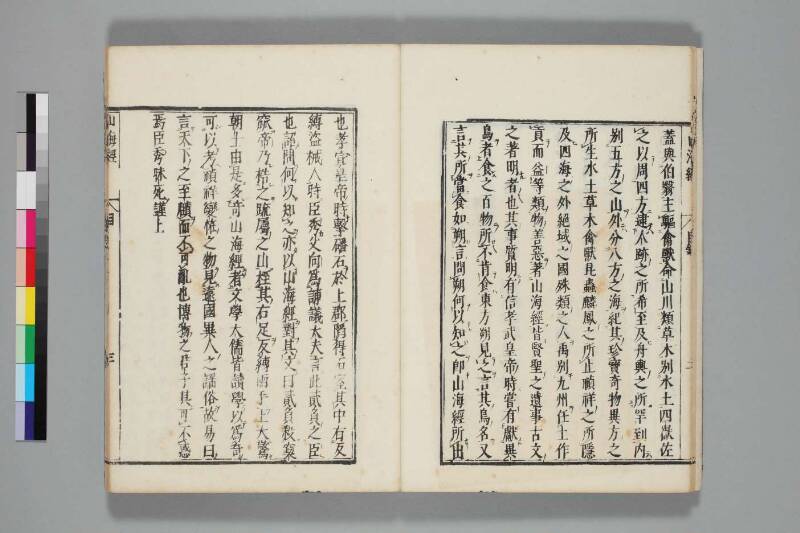 蓋與伯翳主驅禽獸命山川類草木別水土四嶽佐
之以周四方逮人跡之所希至及舟輿之所罕到内
別五方之山外分八方之海紀其珍寶奇物異方之
所生水土草木禽獸昆蟲麟鳳之所止禎祥之所隱
及四海之外絕域之國殊類之人禹別九州任土作
貢而益等類物善惡著山海經皆賢聖之遺事古文
之著明者也其事質明有信孝武皇帝時嘗有獻異
鳥者食之百物所不肯食東方朔見之言其鳥名又
言其所當食如朔言問朔何以知之即山海經所出
也孝宣皇帝時擊磻石於上郡陷得石室其中有反
縛盜械人時臣秀父向爲諫議大夫言此貳負之臣
也詔問何以知之亦以山海經對其文曰貳負殺窫
窳帝乃梏之疏屬之山桎其右足反縛兩手上大驚
朝士由是多奇山海經者文學大儒皆讀學以爲奇
可以考禎祥變怪之物見遠國異人之謡俗故易曰
言天下之至賾而不可亂也博物之君子其可不惑
焉臣秀昧死謹上
山海經
目錄
三